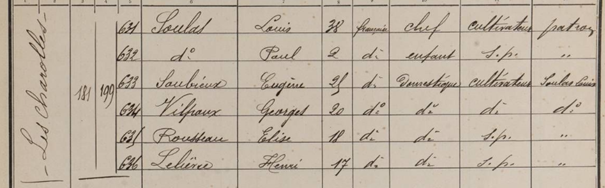 Les Charolles
181 199
631 Soulas Louis 38 française chef cultivateur patron
632 do Paul 2 do enfant s.p. "
633 Soubieux Eugène 25 do Domestique cultivateur Soulas Louis
634 Vilpoux Georges 20 do do do do
635 Rousseau Elise 18 do do s.p. "
636 Lelièvre Henri 17 do do s.p. "